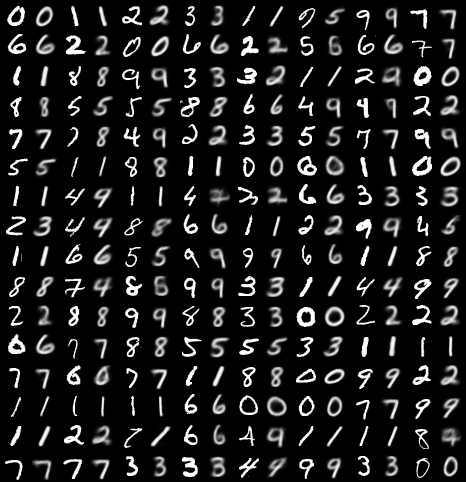 0 0 1 1 2 2 3 3 1 1 5 9 9 7 7
6 6 2 2 0 0 6 6 2 2 5 6 6 7 7
1 1 8 8 9 9 3 3 3 2 1 1 2 9 0 0
8 8 5 5 5 5 8 8 6 6 4 9 9 9 2 2
7 7 7 8 4 9 2 2 3 3 5 5 7 7 9 9
5 5 1 1 8 8 1 1 0 0 6 0 1 1 0 0
1 1 4 9 1 1 4 2 2 6 6 3 3 3 3
2 3 4 9 8 8 6 6 1 1 2 2 9 9 4 5
1 1 6 6 5 5 9 9 9 9 6 6 1 1 8 8
8 8 7 4 8 8 9 9 3 3 1 1 4 4 9 9
2 2 8 8 9 9 8 8 3 3 0 0 2 2 2 2
6 6 7 7 8 8 5 5 5 5 3 3 1 1 1 1
7 7 6 6 7 7 1 1 8 8 0 0 9 9 2 2
1 1 1 1 1 1 6 6 0 0 0 0 7 7 9 9
1 1 2 2 7 1 6 6 4 9 1 1 1 1 8 9
7 7 7 7 3 3 3 3 4 4 9 9 3 3 0 0